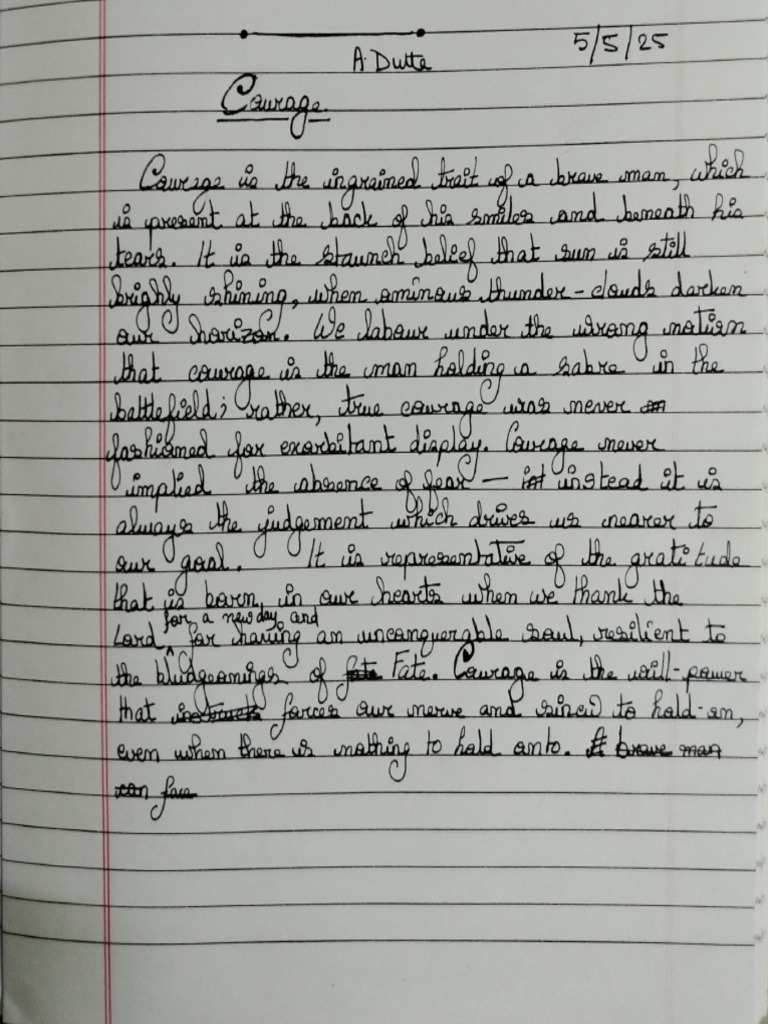 5/5/25
A. Dutta
Courage
Courage is the ingrained trait of a brave man, which
is present at the back of his smiles and beneath his
tears. It is the staunch belief that sun is still
brighly shining, when ominous thunder-clouds darken
our horizon. We labour under the wrong notion
that courage is the man holding a sabre in the
battlefield; rather, true courage was never
fashioned for exorbitant display. Courage never
implied the absence of fear — instead it is
always the judgement which drives us nearer to
our goal. It is representative of the gratitude
that is born, in our hearts when we thank the
for a new day and
Lord for having an unconquerable soul, resilient to
the bludgeonings of Fate. Courage is the will-power
that forces our nerve and sinew to hold-on,
even when there is nothing to hold onto. A brave man